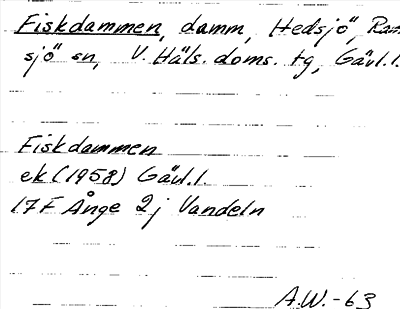 Fiskdammen, damm, Hedsjö, Ram
sjö sn, V. Häls. doms. tg, Gävl.l.
Fiskdammen
ek (1958) Gävl.l.
17F Ånge 2j Vandeln
A.W.-63